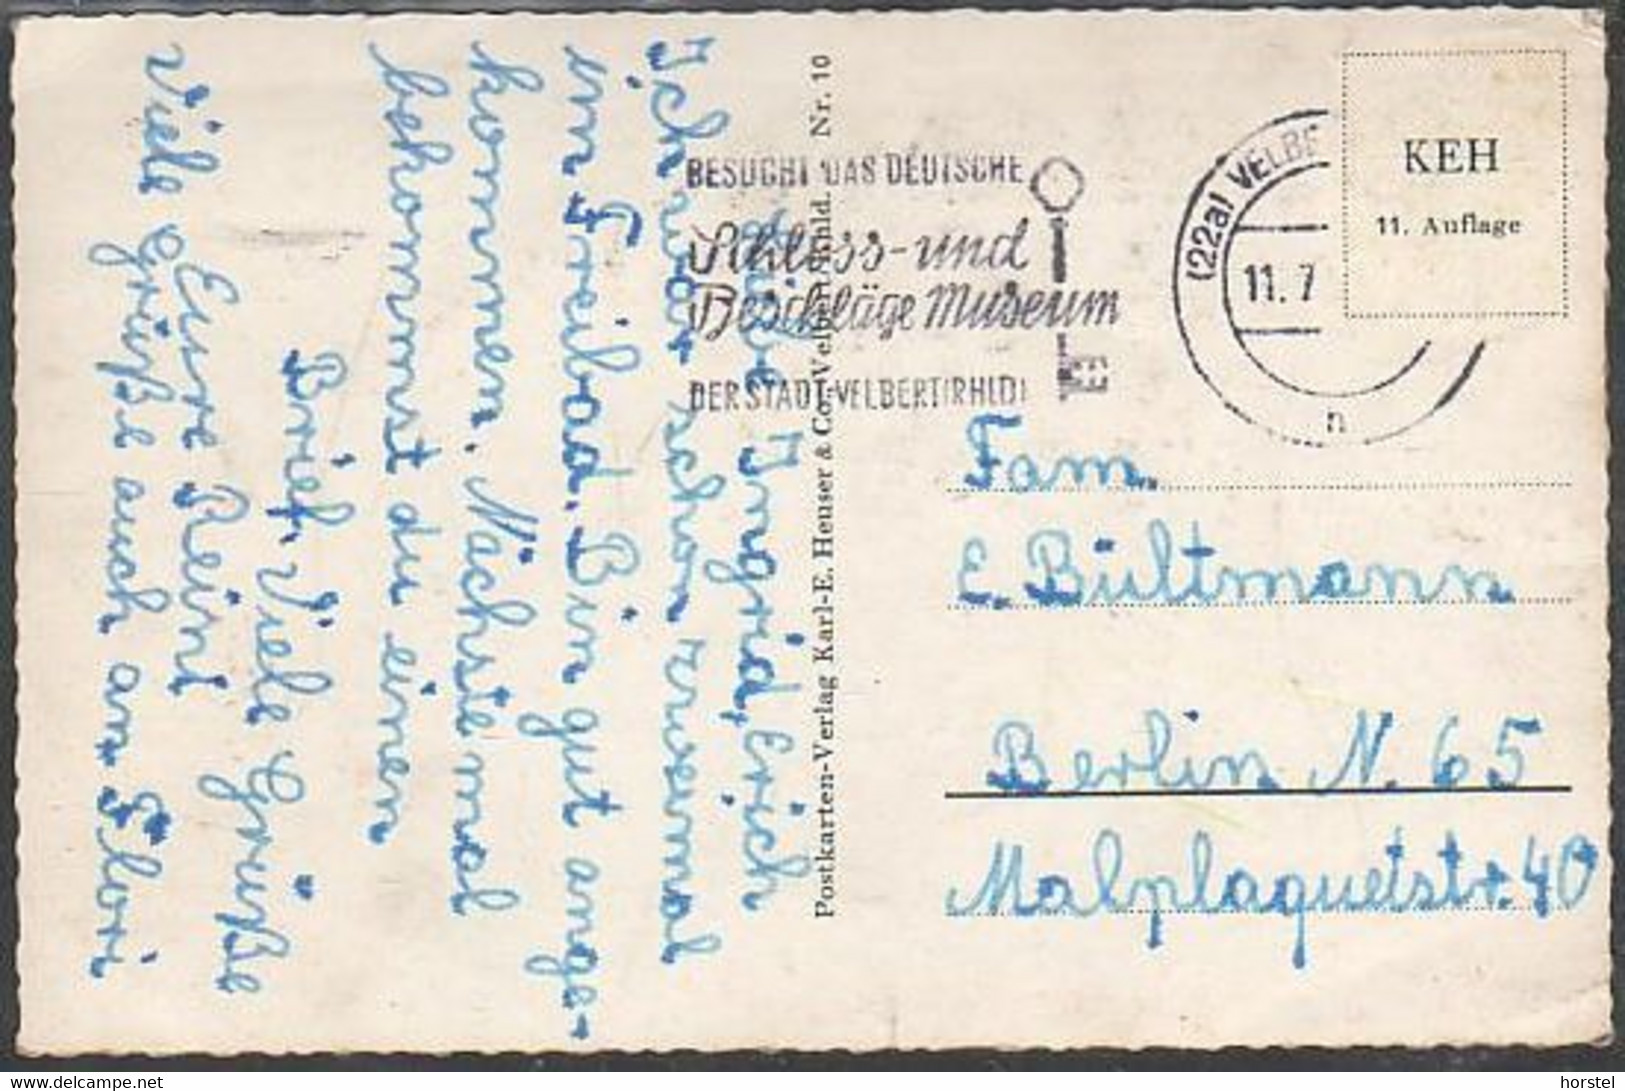 Liebe Ingrid, Erich
Ich war schon zweimal
im Freibad. Bin gut ange-
kommen. Nächstemal
bekommst du einen
Brief. Viele Grüße
Eure Reint
Viele Grüße auch an Flori
Postkarten-Verlag Karl-E. Heuser & Co., Velbert/Rhld. Nr. 10
BESUCHT DAS DEUTSCHE
Schloss- und
Beschläge Museum
DER STADT VELBERT(RHLD)
(22a) VELBE
11.7
n
KEH
11. Auflage
Fam.
E. Bültmann
Berlin N. 65
Malplaquetstr. 40
www.delcampe.net
horstel